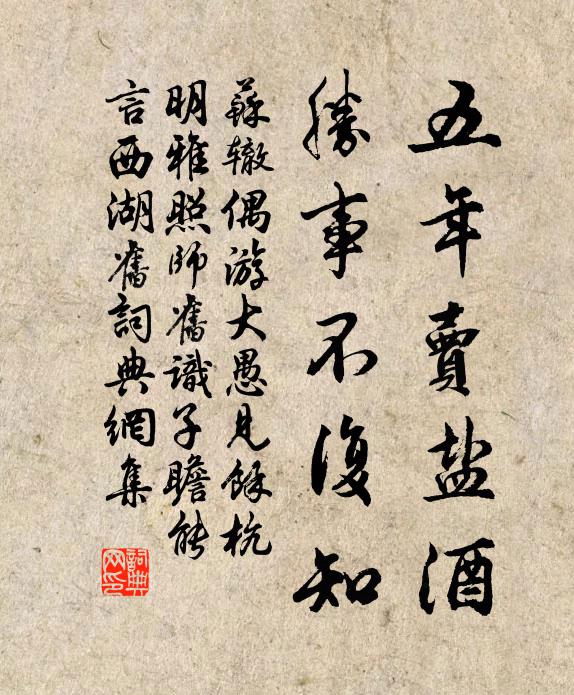 五年賣盐酒
勝事不復知
蘇辙偶游大愚見餘杭
明雅照师舊識子瞻能
言西湖舊詞典網集
詞典
网印